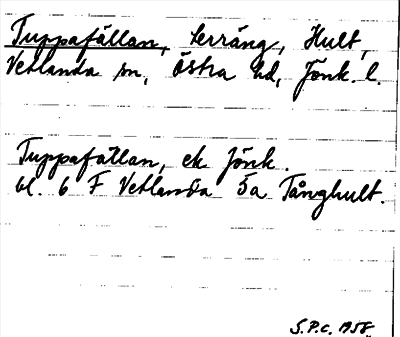 Tuppafällan, terräng, Hult,
Vetlanda sn, Östra hd, Jönk. l.
Tuppafällan, ek Jönk.
bl. 6 F Vetlanda 5a Tånghult.
S.P.C. 1958.